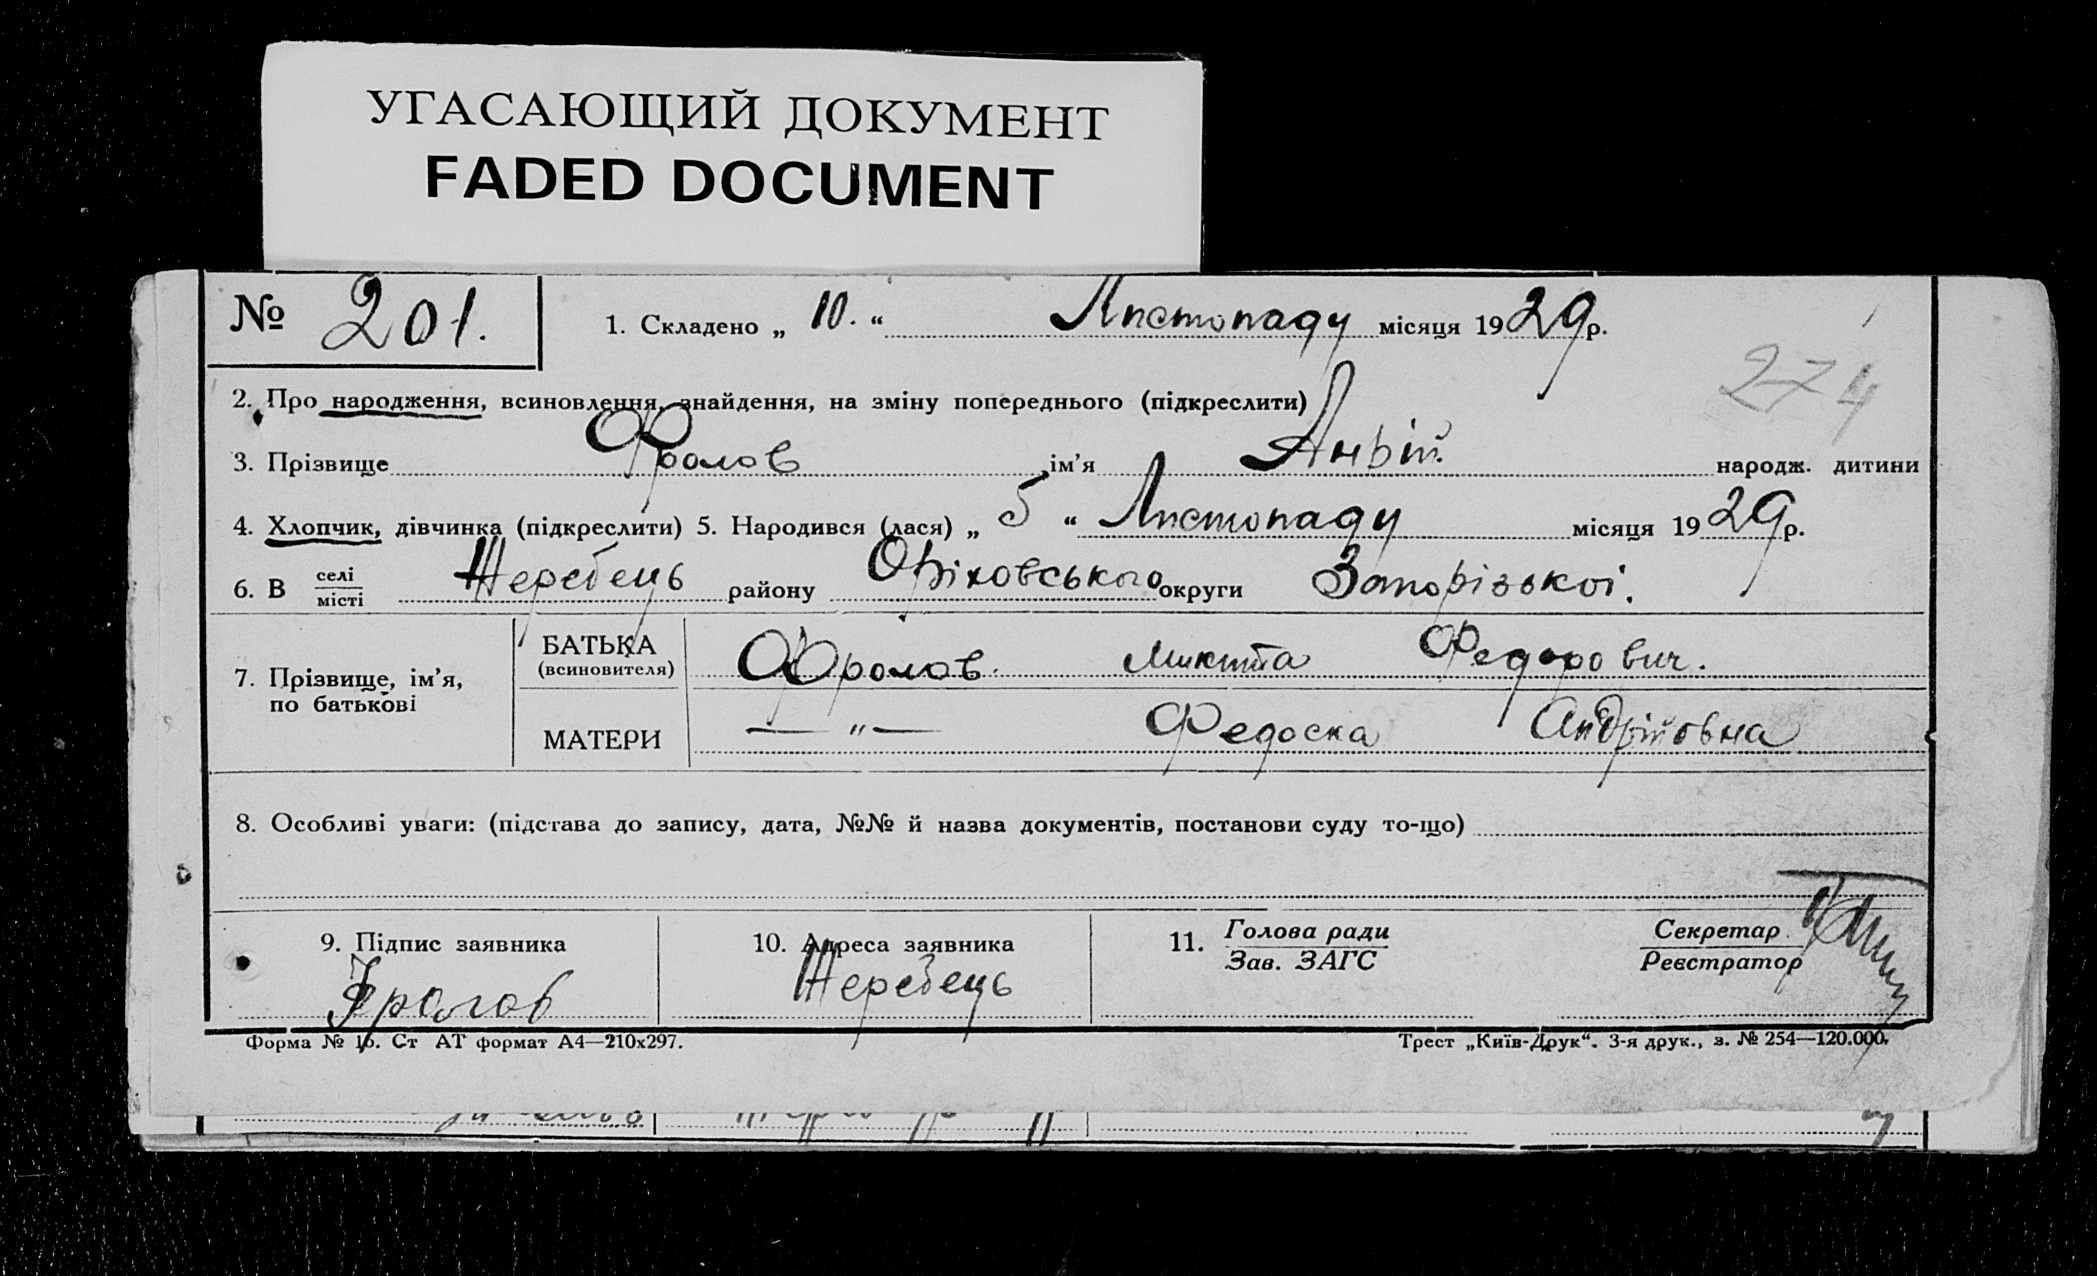 УГАСАЮЩИЙ ДОКУМЕНТ
FADED DOCUMENT
№ 201. 1. Складено „ 10. “ Листопаду місяця 1929р.
274
2. Про народження, всиновлення, знайдення, на зміну попереднього (підкреслити)
3. Прізвище Фролов ім’я Анрій народж. дитини
4. Хлопчик, дівчинка (підкреслити) 5. Народився (лася) „ 5 “ Листопаду місяця 1929р.
6. В селі місті Жеребець району Оріховського округи Запорізькоі.
7. Прізвище, ім’я, по батькові
БАТЬКА (всиновителя) Фролов. Микита Федорович.
МАТЕРИ — „ — Федоска Андрійовна
8. Особливі уваги: (підстава до запису, дата, №№ й назва документів, постанови суду то-що)
9. Підпис заявника 10. Адреса заявника 11. Голова ради Зав. ЗАГС Секретар Реєстратор
Фролов Жеребець
Форма № 1б. Ст АТ формат А4—210х297. Трест „Київ-Друк“. 3-я друк., з. № 254—120.000.